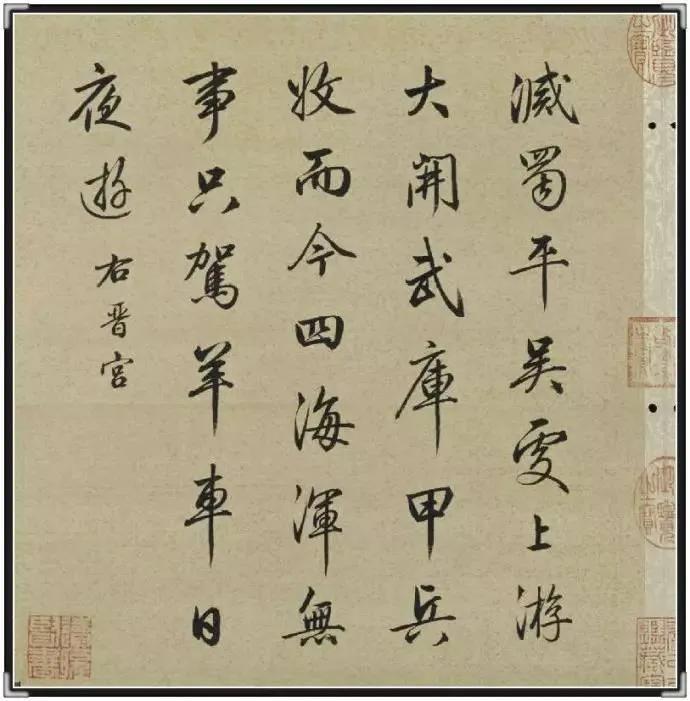 滅蜀平吳更上游
大開武庫甲兵
收而今四海渾無
事只駕羊車日
夜遊 右晋宮